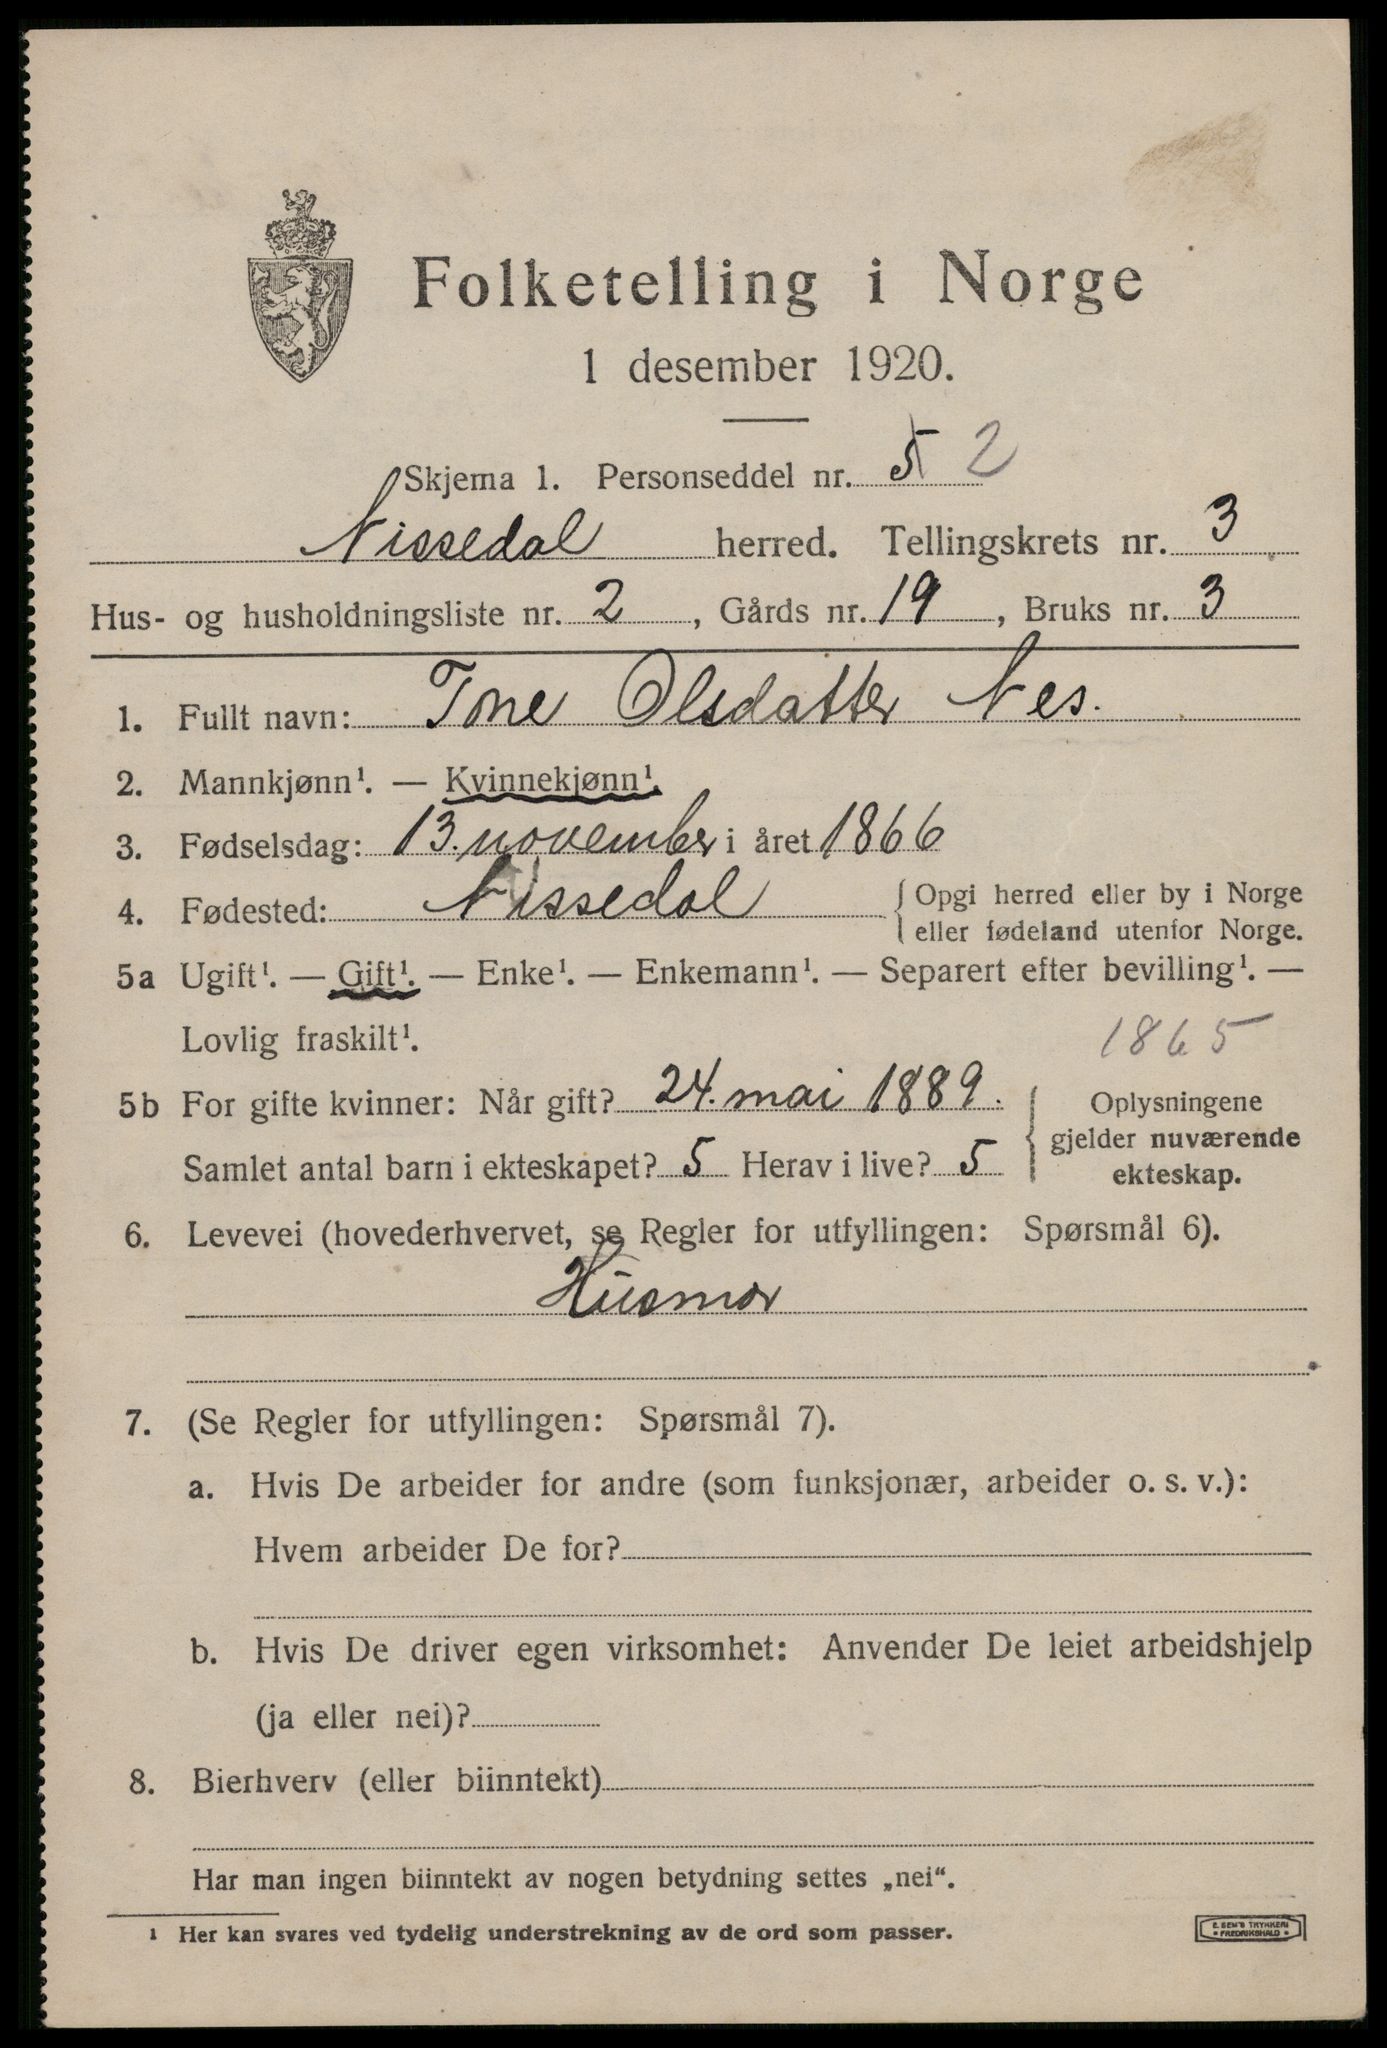 Folketelling i Norge
1 desember 1920.
Skjema 1. Personseddel nr. 5 2
Nissedal herred. Tellingskrets nr. 3
Hus- og husholdningsliste nr. 2, Gårds nr. 19, Bruks nr. 3
1. Fullt navn: Tone Olsdatter Nes.
2. Mannkjønn¹. — Kvinnekjønn¹.
3. Fødselsdag: 13. november i året 1866
4. Fødested: Nissedal { Opgi herred eller by i Norge
eller fødeland utenfor Norge.
5a Ugift¹. — Gift¹. — Enke¹. — Enkemann¹. — Separert efter bevilling¹. —
Lovlig fraskilt¹. 1865
5b For gifte kvinner: Når gift? 24. mai 1889. Oplysningene
gjelder nuværende
Samlet antal barn i ekteskapet? 5 Herav i live? 5 ekteskap.
6. Levevei (hovederhvervet, se Regler for utfyllingen: Spørsmål 6).
Husmor
7. (Se Regler for utfyllingen: Spørsmål 7).
a. Hvis De arbeider for andre (som funksjonær, arbeider o. s. v.):
Hvem arbeider De for?
b. Hvis De driver egen virksomhet: Anvender De leiet arbeidshjelp
(ja eller nei)?
8. Bierhverv (eller biinntekt)
Har man ingen biinntekt av nogen betydning settes „nei“.
¹ Her kan svares ved tydelig understrekning av de ord som passer.
E. SEM'S TRYKKERI
• FREDRIKSHALD •